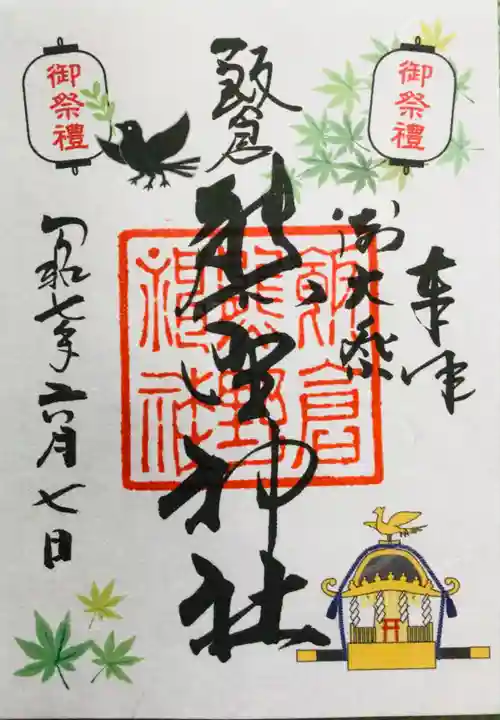 御祭禮
御祭禮
奉拝
御大祭
飯倉
熊野神社
令和七年六月七日
飯倉
熊野
神社